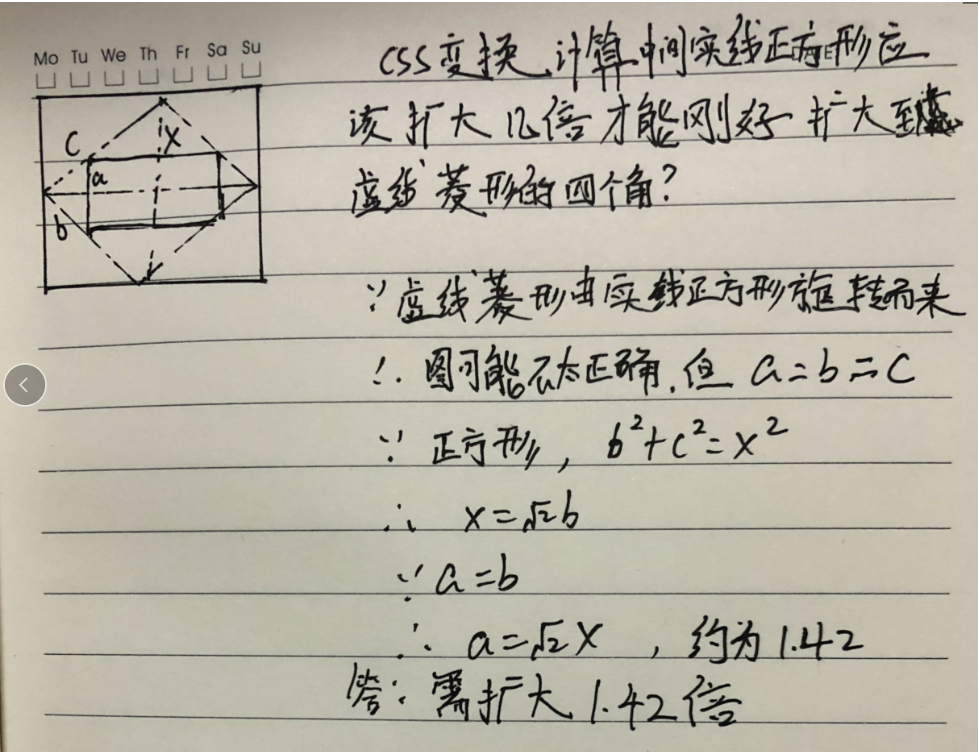 Mo Tu We Th Fr Sa Su
CSS变换,计算中间实线正方形应
该扩大几倍才能刚好扩大到
虚线菱形的四个角?
C
X
a
b
∵虚线菱形由实线正方形旋转而来
∴图可能不太正确,但 a=b=c
∵ 正方形, b²+c²=x²
∴ x=√2b
∵ a=b
∴ a=√2x ,约为1.42
答:需扩大1.42倍